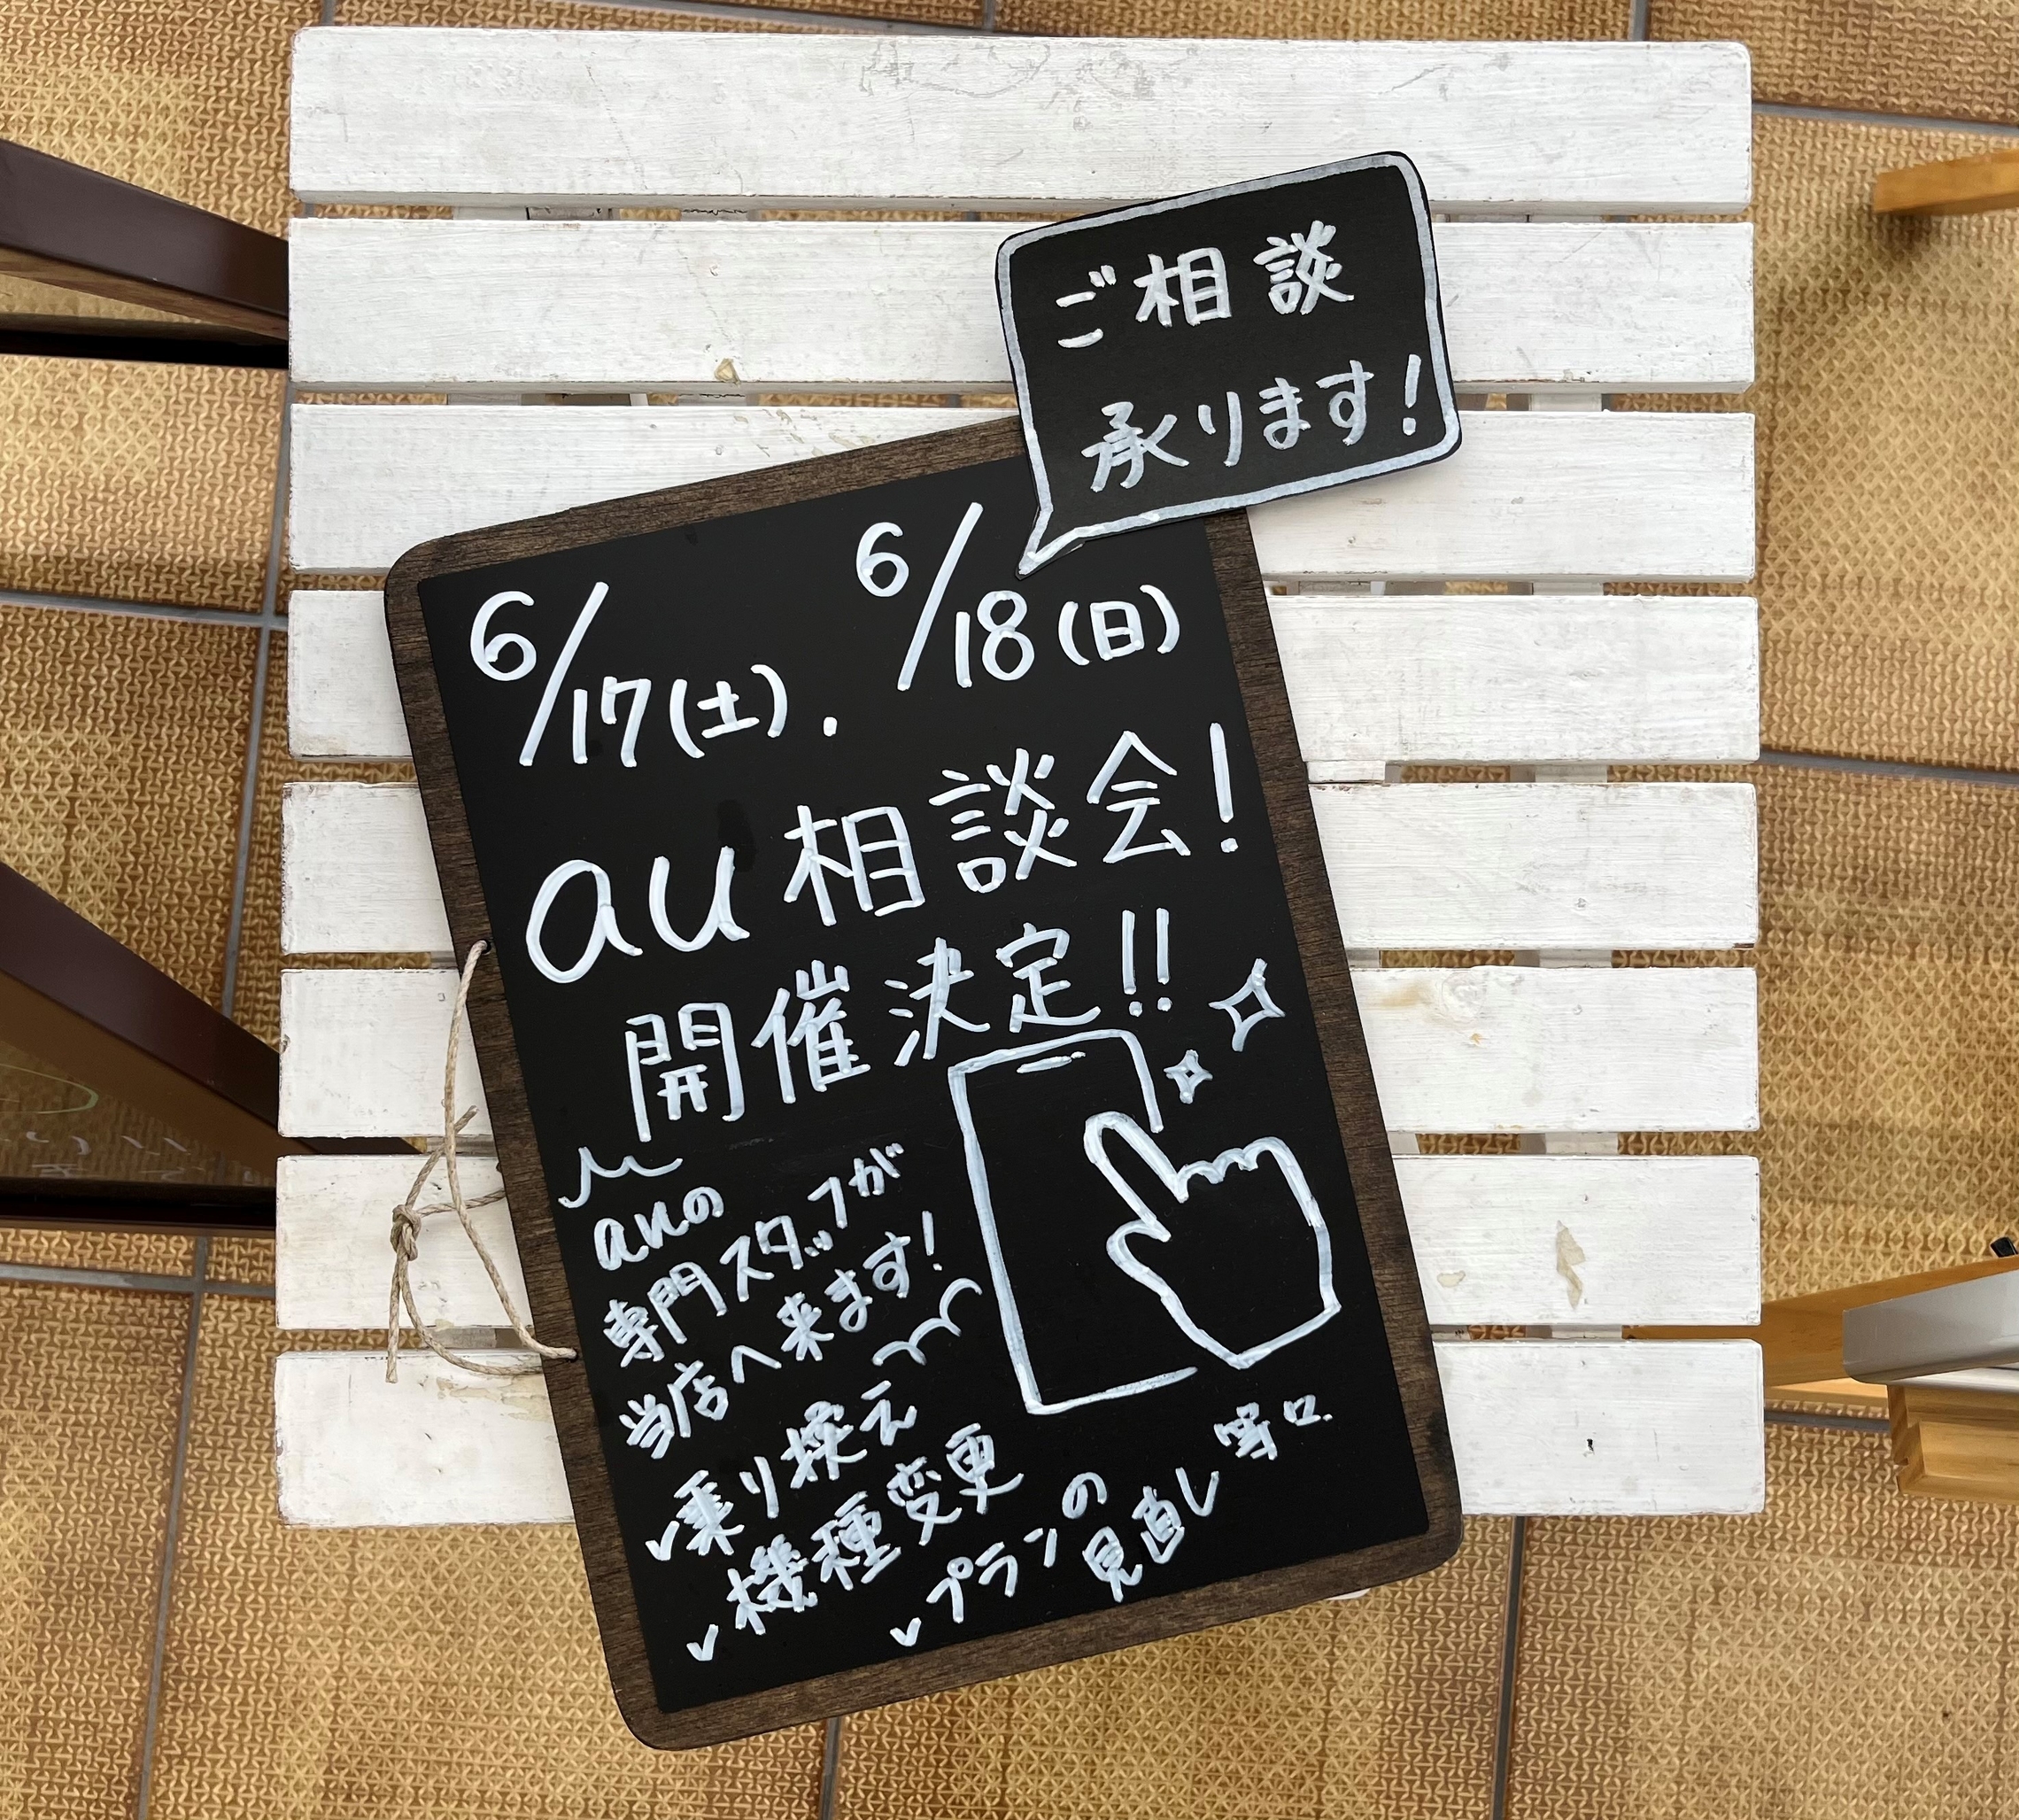 ご相談
承ります！
6/17(土)．6/18(日)
au相談会！
開催決定！！
auの
専門スタッフが
当店へ来ます！
✓乗り換え
✓機種変更
✓プランの
見直し
等々